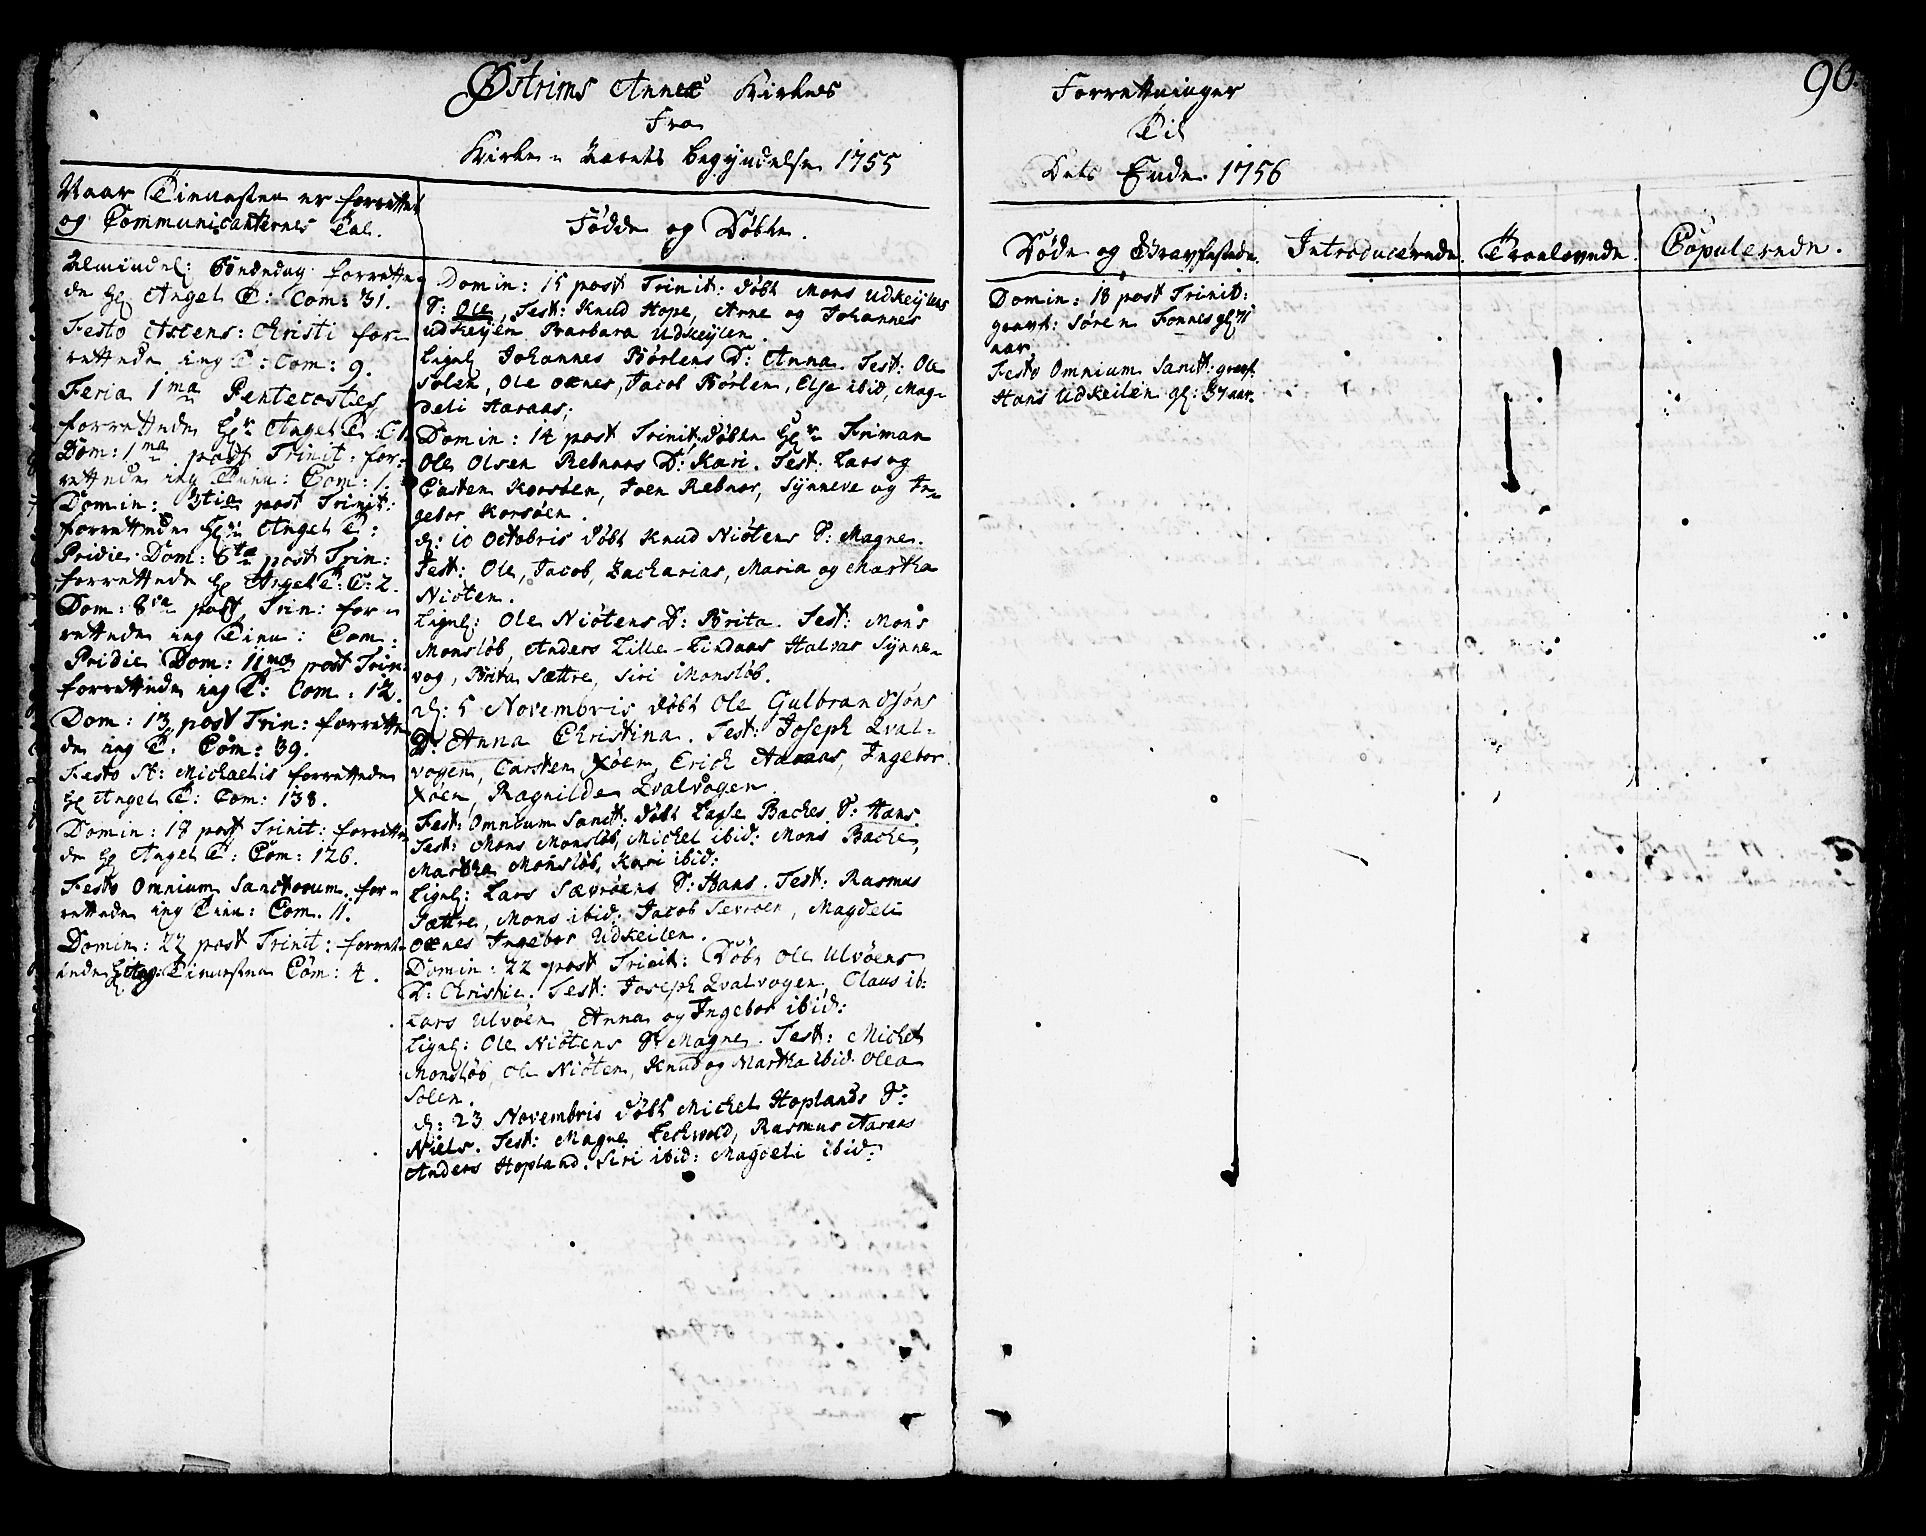 Østrims Annex Kirkes
Fra
Kirke-Aarets begyndelse 1755
Forretninger
Til
Dets Ende 1756
90.
Naar Tienesten er forrettet
og Communicanternes Tal.
Fødde og Døbte.
Døde og Gravfestede.
Introducerede.
Troelovede.
Copulerede.
Almindel: Bøndedag forrette-
de Hr Angel T: Com: 31.
Festo Ascens: Christi for-
rettede ieg T: Com: 9.
Feria 1ma Pentecostes
forrettede Hr Angel T: C 1.
Dom: 1ma post Trinit: for-
rettede ieg Tien: Com: 1.
Domin: 3tia post Trinit:
forrettede Hr Angel T:
Pridie Dom: 6ta post Trin:
forrettede Hr Angel T: C: 2.
Dom: 8va post Trin: for-
rettede ieg Tien: Com:
Pridie Dom: 11ma post Trin:
forrettede ieg T: Com: 12.
Dom: 13 post Trin: forrette-
de ieg T: Com: 39.
Festo St: Michaelis forrettede
Hr Angel T: Com: 138.
Domin: 18 post Trinit: forrette-
de Hr Angel T: Com: 126.
Festo Omnium Sanctorum for-
rettede ieg Tien: Com. 11.
Domin: 22 post Trinit: forret-
tede ieg Tienesten Com: 4.
Domin: 15 post Trinit: døbt Mons Udkeylens
S: Ole, Test: Knud Hope, Arne og Johannes
Udkeylen Barbara Udkeylen.
Ligel: Johannes Børlens D: Anna. Test: Ole
Solen, Ole Oxnes, Jacob Børlen, Else ibid, Mag-
deli Aaraas;
Domin: 14 post Trinit: døbte Hr Friman
Ole Olsen Rebnors D: Kari. Test: Lars og
Casten Korsøen, Joen Rebnor, Synneve og In-
gebor Korsøen.
d: 10 Octobris døbt Knud Niötens S: Magne.
Test: Ole, Jacob, Zacharias, Maria og Martha
Niöten.
Ligel: Ole Niötens D: Brita. Test: Mons
Monsløb, Anders Lille-Lindaas Halvar Synne-
vog, Brita Sættre, Siri Monsløb.
d: 5 Novembris døbt Ole Gulbrandsøns
D: Anna Christina. Test: Joseph Qval-
vogen, Carsten Xøen, Erich Aaraas, Ingebor
Xøen, Ragnilde Qvalvogen.
Fest: Omnium Sanct: døbt Lasse Baches S: Hans.
Test: Mons Monsløb, Michel ibid: Mons Bache,
Martha Monsløb, Kari ibid:
Ligel: Lars Sævrøens S: Hans. Test: Rasmus
Sættre, Mons ibid: Jacob Sevrøen, Magdeli
Oxnes Ingebor Udkeilen.
Domin: 22 post Trinit: Døbt Ole Ulvøens
D: Christie. Test: Joseph Qvalvogen, Claus ib:
Lars Ulvøen, Anna og Ingebor ibid:
Ligel: Ole Niötens S: Magne. Test: Michel
Monsløb, Ole Niöten, Knud og Martha ibid: Olea
Solen.
d: 23 Novembris døbt Michel Hoplands S:
Niels. Test: Magne Rasmus Aaraas
Anders Hopland. Siri ibid: Magdeli ibid:
Domin: 18 post Trinit:
gravf: Søren Fonnes gl: 71
aar
Festo Omnium Sanct: gravf.
Hans Udkeilen gl: 37 aar.